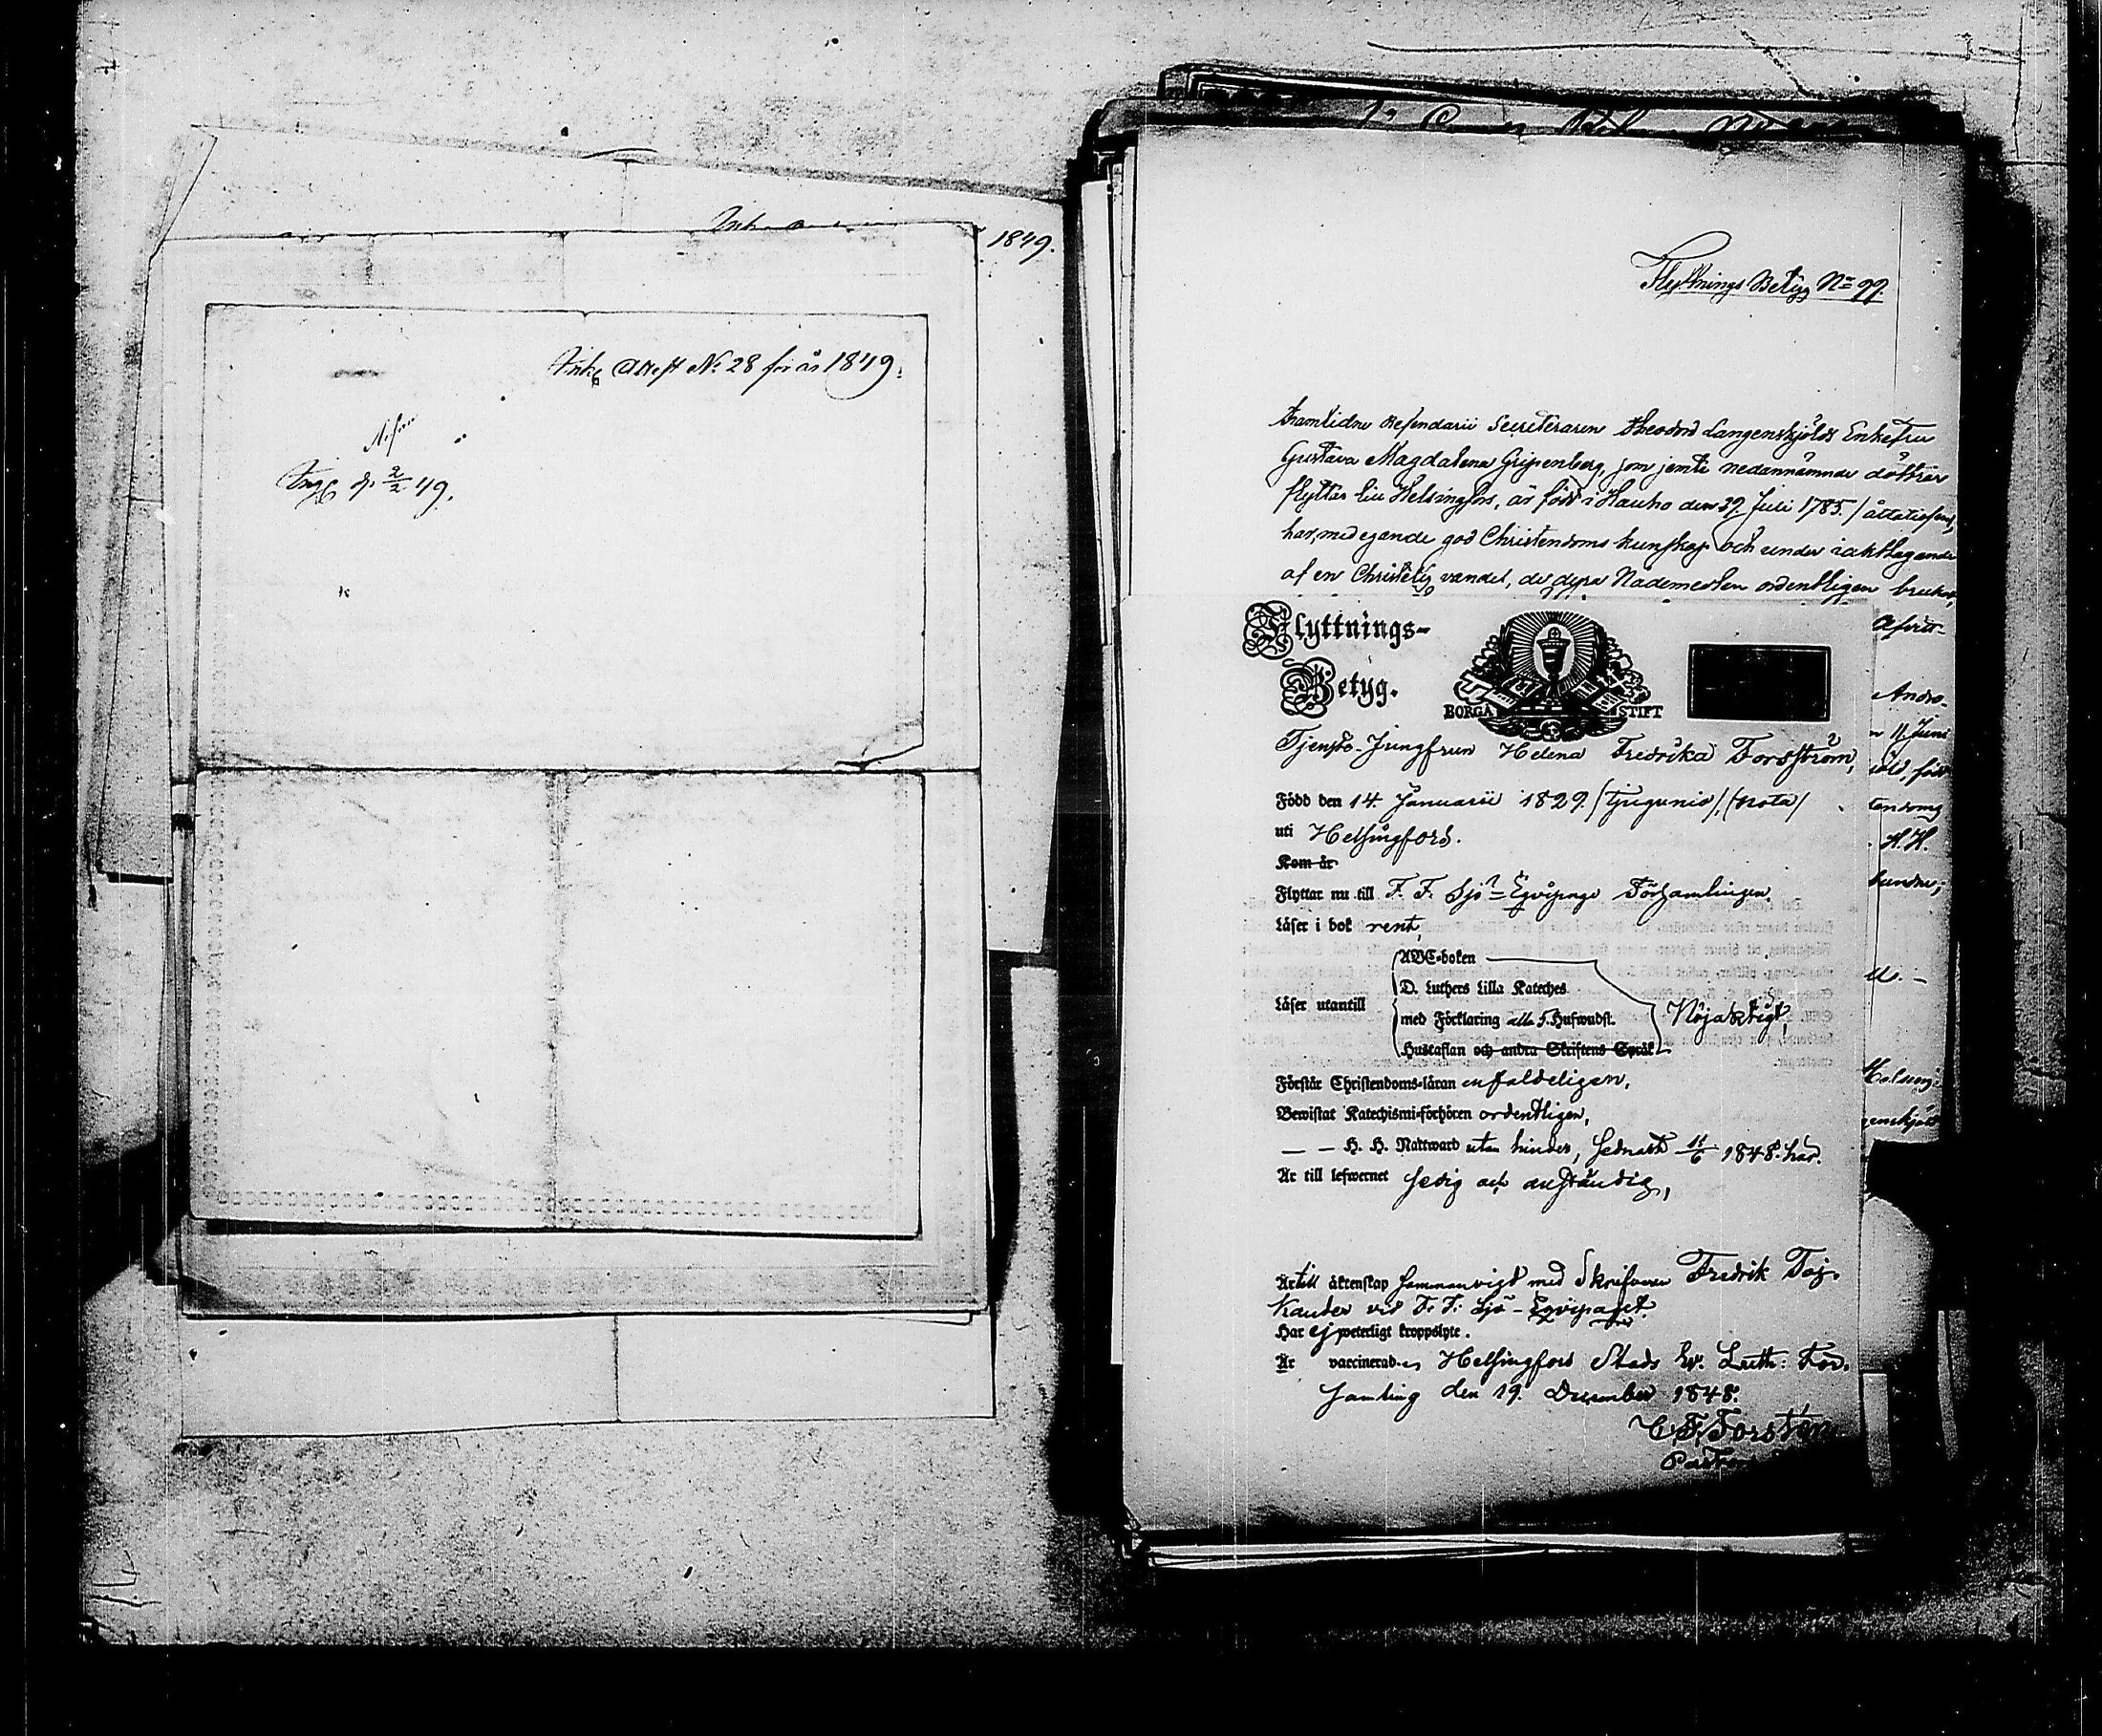 1849.
Ink. Attest No 28 för år 1849.
Ing. d. 2/2 49.
Flyttnings Betyg No 99.
Framlidne Referendarii Secreteraren Theodord Langenskjölds Enkefru
Gustava Magdalena Gripenberg, som jemte nedannämnde döttrar
flyttar till Helsingfors, är född i Hauho den 29. Juli 1785.
har, med egande god Christendoms kunskap och under iakttagande
af en Christelig vandel, de dyra Nådemedlen ordentligen brukat,
Flyttnings-
Betyg.
BORGÅ STIFT
Tjensto-Jungfrun Helena Fredrika Forsström,
Född den 14. Januarii 1829. /tjugunio/, (nota)
uti Helsingfors.
Kom år
Flyttar nu till F. F. Sjö-Eqvipage Församlingen.
Läser i bok rent,
ABC-boken
D. Luthers Lilla Kateches
Läser utantill med Förklaring alla 5. Hufwudst. Nöjaktigt,
Hustaflan och andra Skriftens Språk
Förstår Christendoms-läran enfaldeligen,
Bewistat Katechismi-förhören ordentligen,
— — H. H. Nattward utan hinder, sednast 11/6 1848. här.
Är till lefwernet sedig och anständig,
Är till äktenskap sammanvigd med Skrifvaren Fredrik Toj-
kander vid F. F. Sjö-Eqvipaget.
Har ej weterligt kroppslyte.
Är vaccinerad. Helsingfors Stads Ev. Luth: För-
samling den 19. December 1848.
C. F. Forstén
Afvitt-
Andr.
11 Juni
född
H. H.